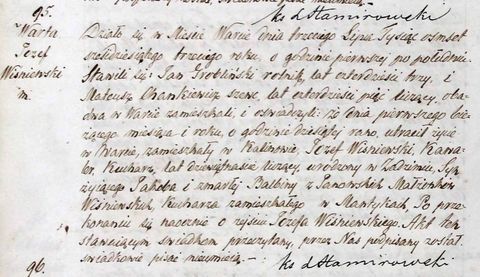 ks dHamirowski
95.
Warta
Józef
Wiśniewski
m.
Działo się w Mieście Warcie dnia trzeciego Lipca Tysiąc ośmset
sześćdziesiątego trzeciego roku, o godzinie pierwszej po południu.
Stawili się: Jan Grobiński rolnik, lat czterdzieści trzy, i
Mateusz szewc, lat czterdzieści pięć liczący, oba-
dwa w Warcie zamieszkali, i oświadczyli: że dnia pierwszego bie-
żącego miesiąca i roku, o godzinie dziesiątej rano, utracił życie
w Warcie, zamieszkały w Kalinowie, Józef Wiśniewski, Kawa-
ler, Kucharz, lat dziewiętnaście liczący, urodzony w Zadzimiu, Syn
żyjącego Jakóba i zmarłej Balbiny z Janowskich Małżonków
Wiśniewskich, Kucharza zamieszkałego w Mantykach. Po prze-
konaniu się naocznie o zejściu Józefa Wiśniewskiego. Akt ten
Stawającym świadkom przeczytany, przez Nas podpisany został,
świadkowie pisać nieumieją. –
ks dHamirowski
96.